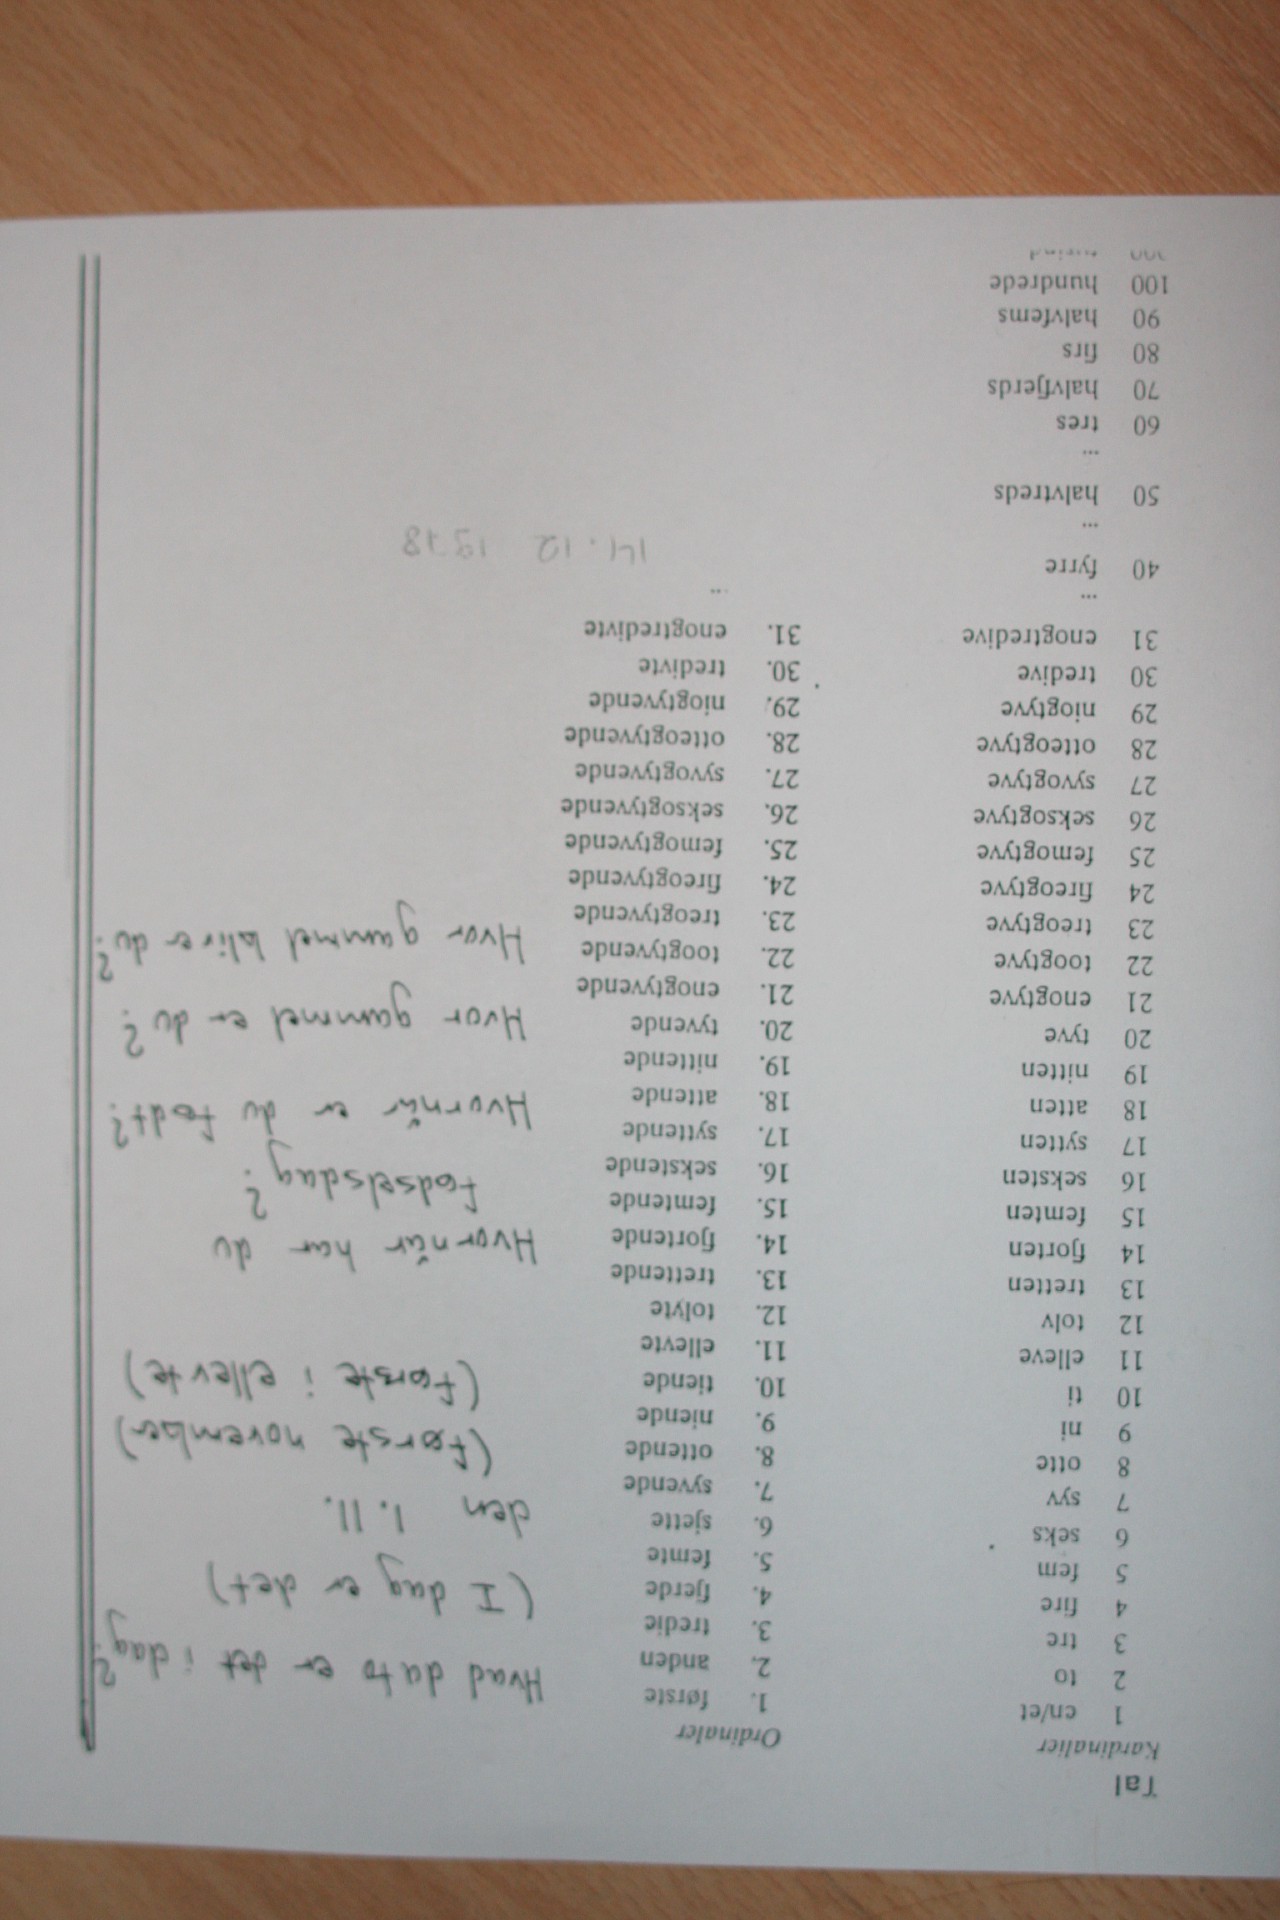 Tal
Kardinalier
1 en/et
2 to
3 tre
4 fire
5 fem
6 seks
7 syv
8 otte
9 ni
10 ti
11 elleve
12 tolv
13 tretten
14 fjorten
15 femten
16 seksten
17 sytten
18 atten
19 nitten
20 tyve
21 enogtyve
22 toogtyve
23 treogtyve
24 fireogtyve
25 femogtyve
26 seksogtyve
27 syvogtyve
28 otteogtyve
29 niogtyve
30 tredive
31 enogtredive
...
40 fyrre
...
50 halvtreds
...
60 tres
70 halvfjerds
80 firs
90 halvfems
100 hundrede
Ordinaler
1. første
2. anden
3. tredie
4. fjerde
5. femte
6. sjette
7. syvende
8. ottende
9. niende
10. tiende
11. ellevte
12. tolvte
13. trettende
14. fjortende
15. femtende
16. sekstende
17. syttende
18. attende
19. nittende
20. tyvende
21. enogtyvende
22. toogtyvende
23. treogtyvende
24. fireogtyvende
25. femogtyvende
26. seksogtyvende
27. syvogtyvende
28. otteogtyvende
29. niogtyvende
30. tredivte
31. enogtredivte
...
14.12 1978
Hvad dato er det i dag?
(I dag er det)
den 1.11.
(første november)
(første i ellevte)
Hvornår har du
fødselsdag?
Hvornår er du født?
Hvor gammel er du?
Hvor gammel bliver du?